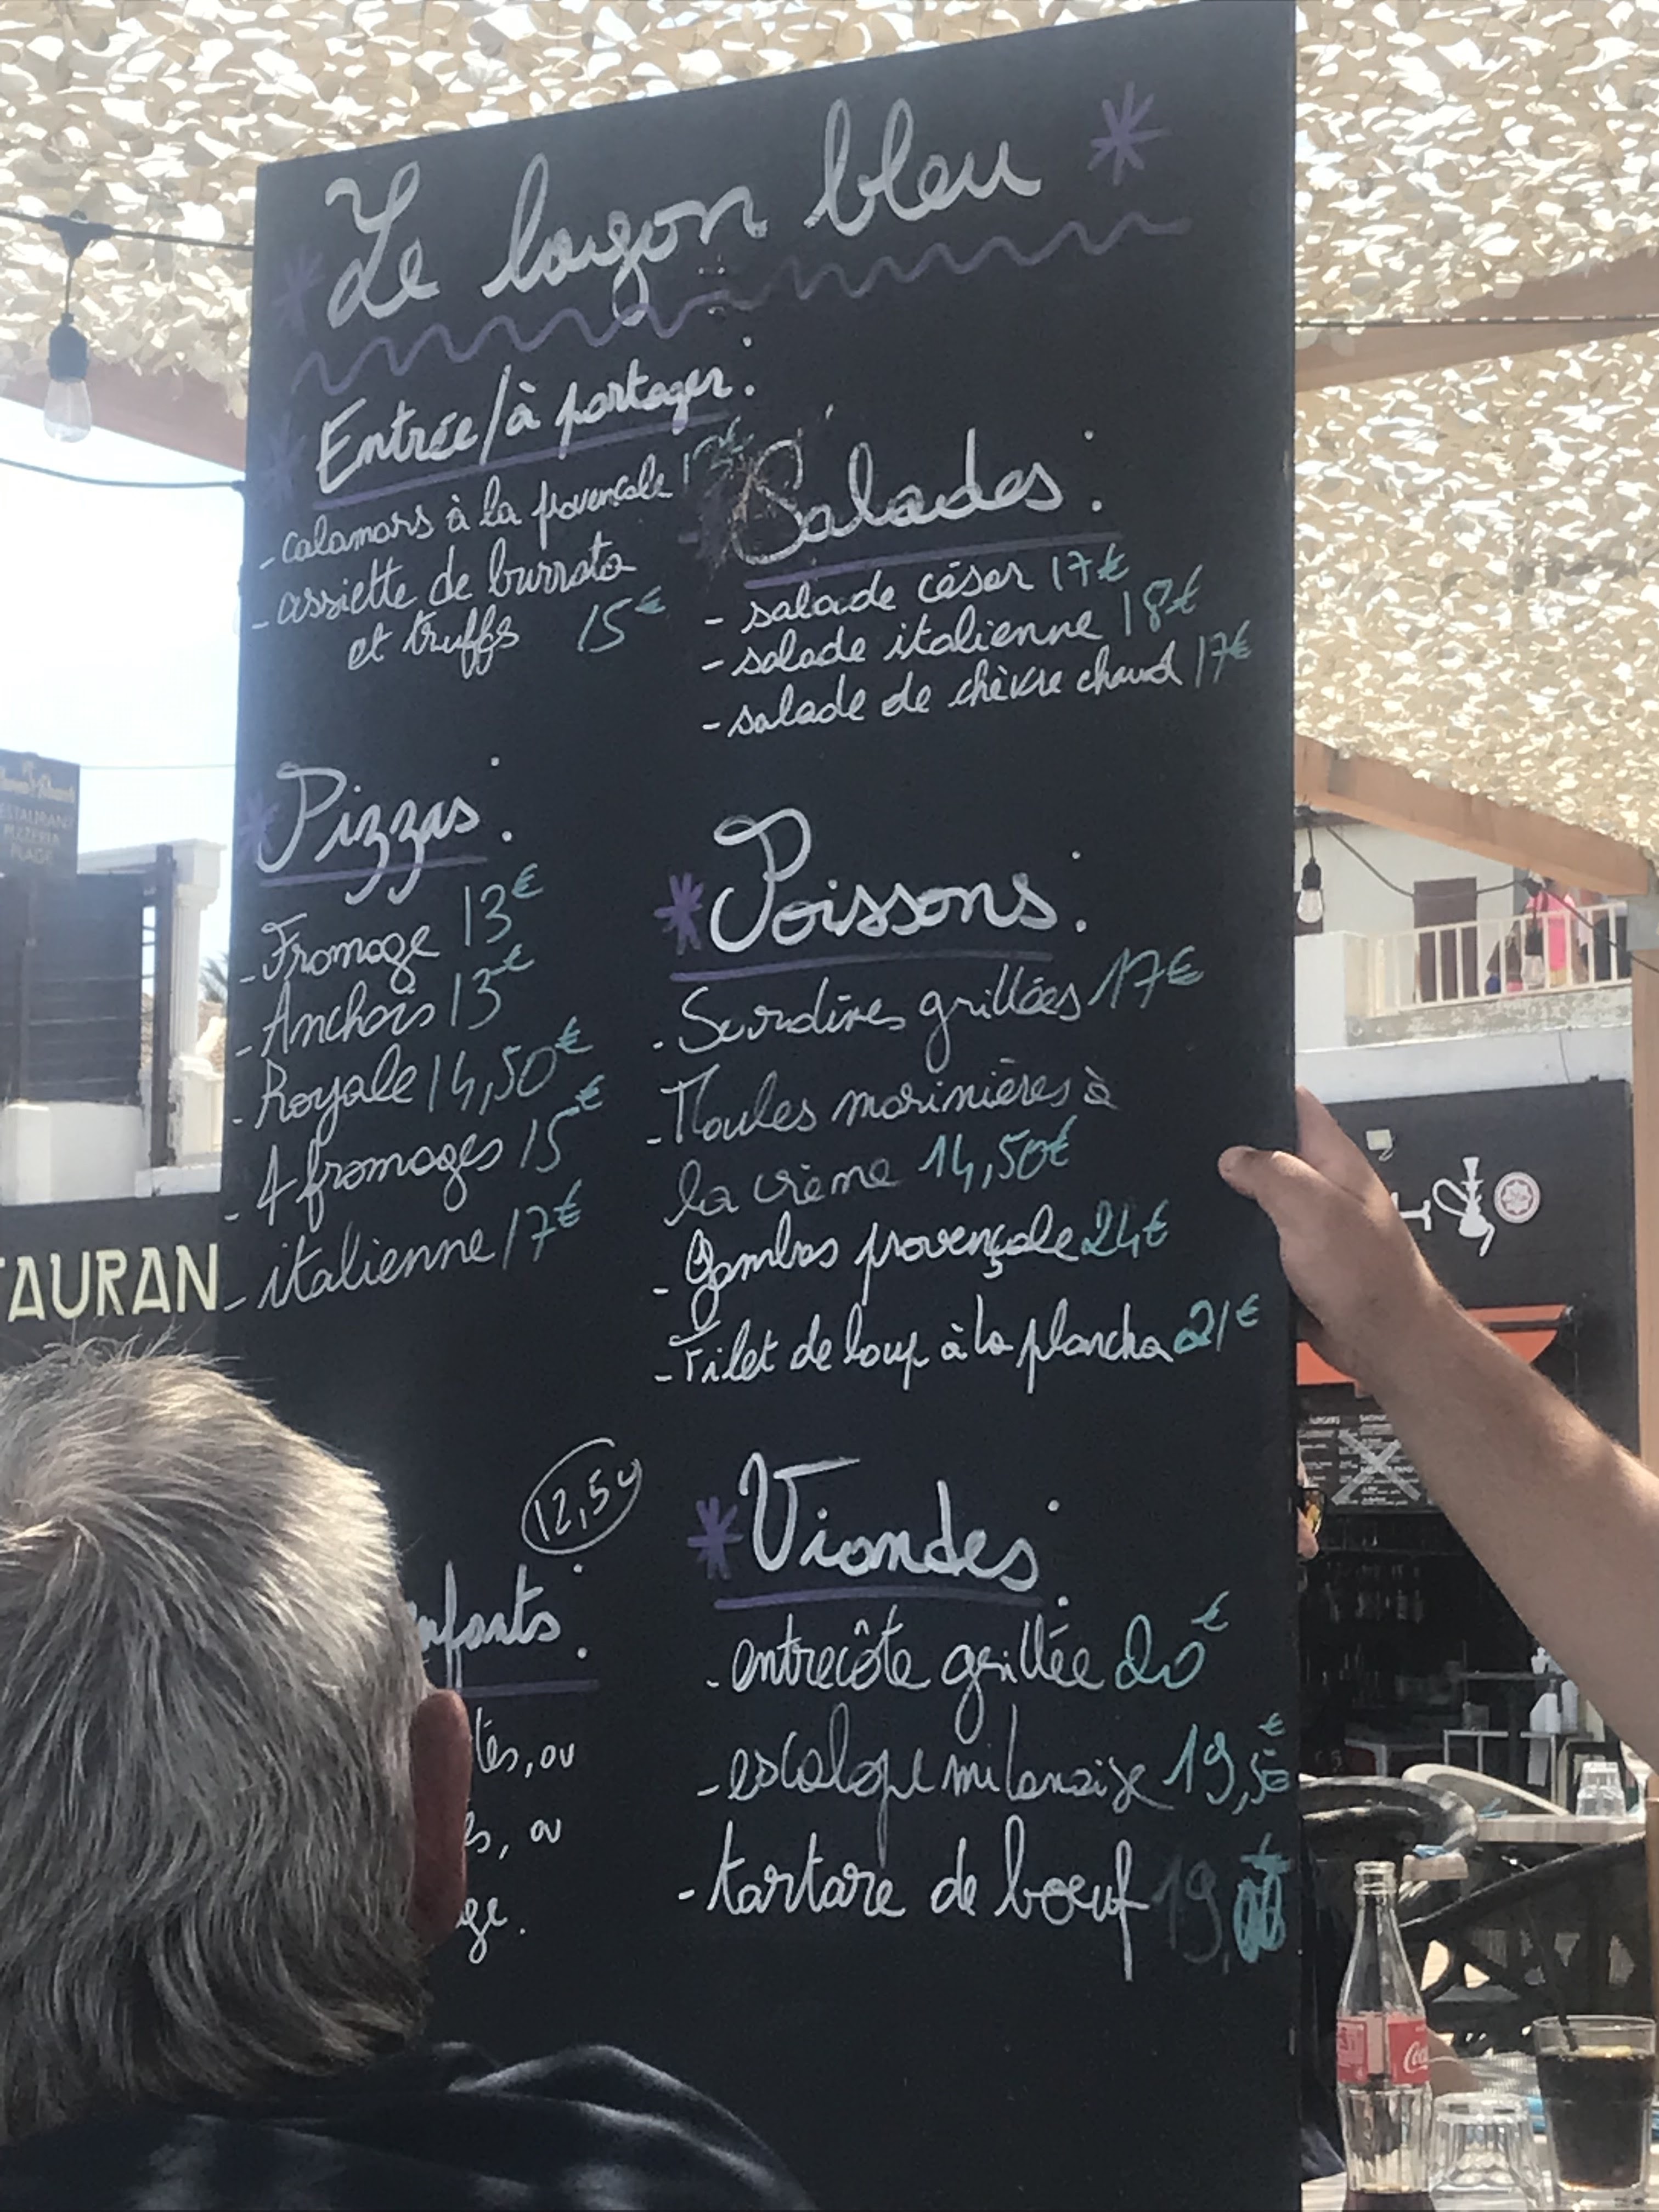 Le lagon bleu
Entrée/à partager:
- calamars à la provençale
- assiette de burrata
et truffes 15€
Salades:
- salade césar 17€
- salade italienne 18€
- salade de chèvre chaud 17€
Pizzas:
- Fromage 13€
- Anchois 13€
- Royale 14,50€
- 4 fromages 15€
- italienne 17€
Poissons:
- Sardines grillées 17€
- Moules marinières à
la crème 14,50€
- Gambas provençale 24€
- Filet de loup à la plancha 21€
12,50
nfants:
tés, ou
s, ou
ge.
Viandes:
- entrecôte grillée 20€
- escalope milanaise 19,50€
- tartare de bœuf 19,
TAURAN
RESTAURANT
PIZZERIA
PLAGE